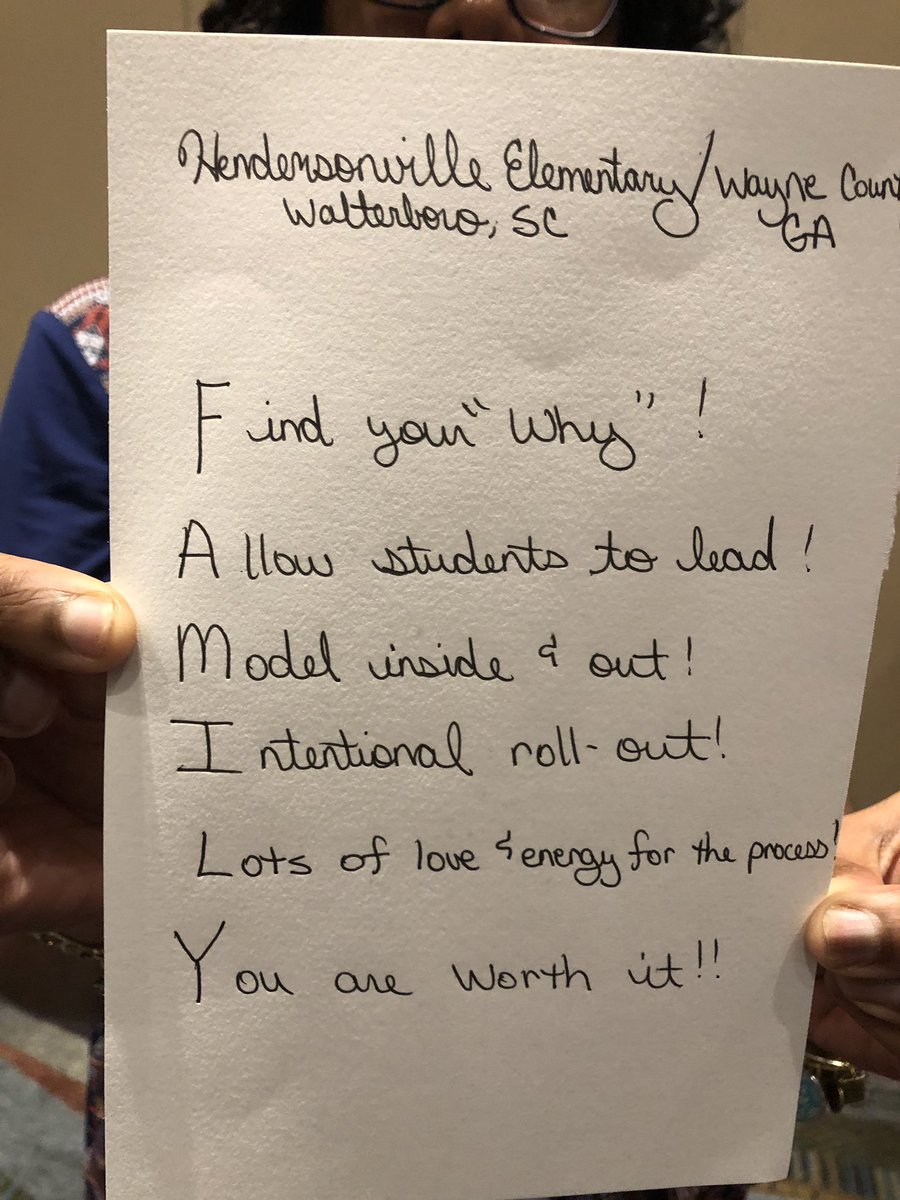 Hendersonville Elementary/Wayne Coun
Walterboro, SC GA
Find your "Why"!
Allow students to lead!
Model inside & out!
Intentional roll-out!
Lots of love & energy for the process!
You are worth it!!